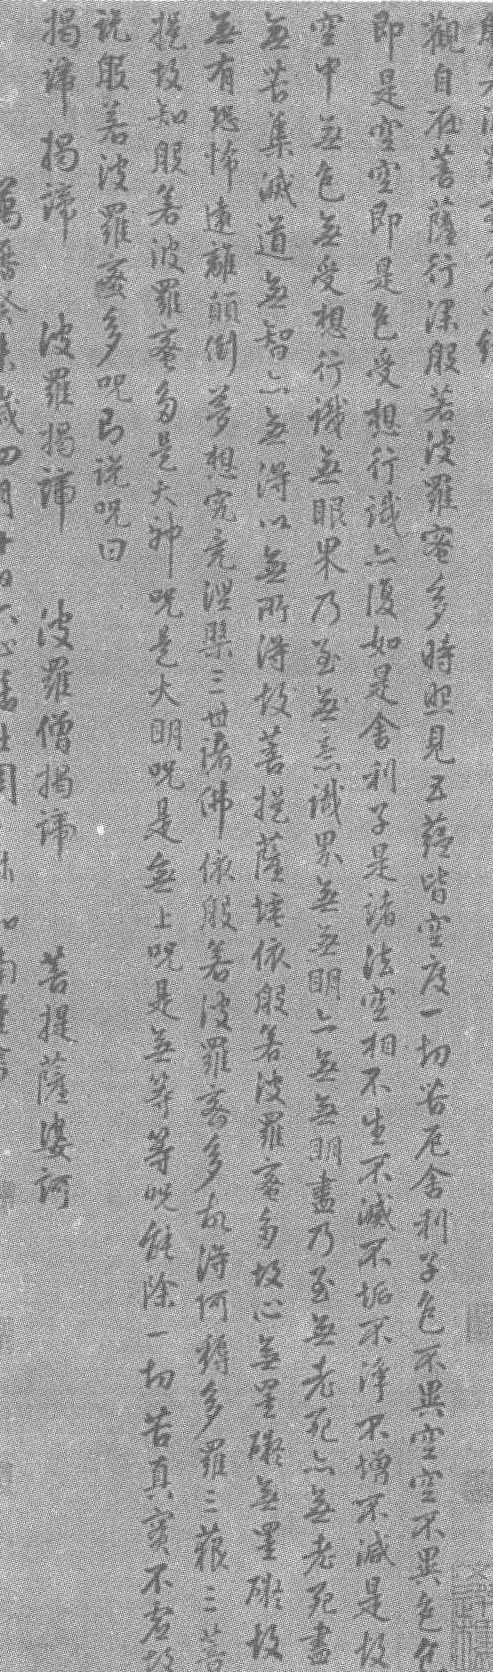 觀自在菩薩行深般若波羅蜜多時照見五蘊皆空度一切苦厄舍利子色不異空空不異色色
即是空空即是色受想行識亦復如是舍利子是諸法空相不生不滅不垢不淨不增不減是故
空中無色無受想行識無眼界乃至無意識界無無明亦無無明盡乃至無老死亦無老死盡
無苦集滅道無智亦無得以無所得故菩提薩埵依般若波羅蜜多故心無罣礙無罣礙故
無有恐怖遠離顛倒夢想究竟涅槃三世諸佛依般若波羅蜜多故得阿耨多羅三藐三菩
提故知般若波羅蜜多是大神呪是大明呪是無上呪是無等等呪能除一切苦真實不虛故
說般若波羅蜜多呪即說呪曰
揭諦揭諦 波羅揭諦 波羅僧揭諦 菩提薩婆訶
萬曆 歲四月十日